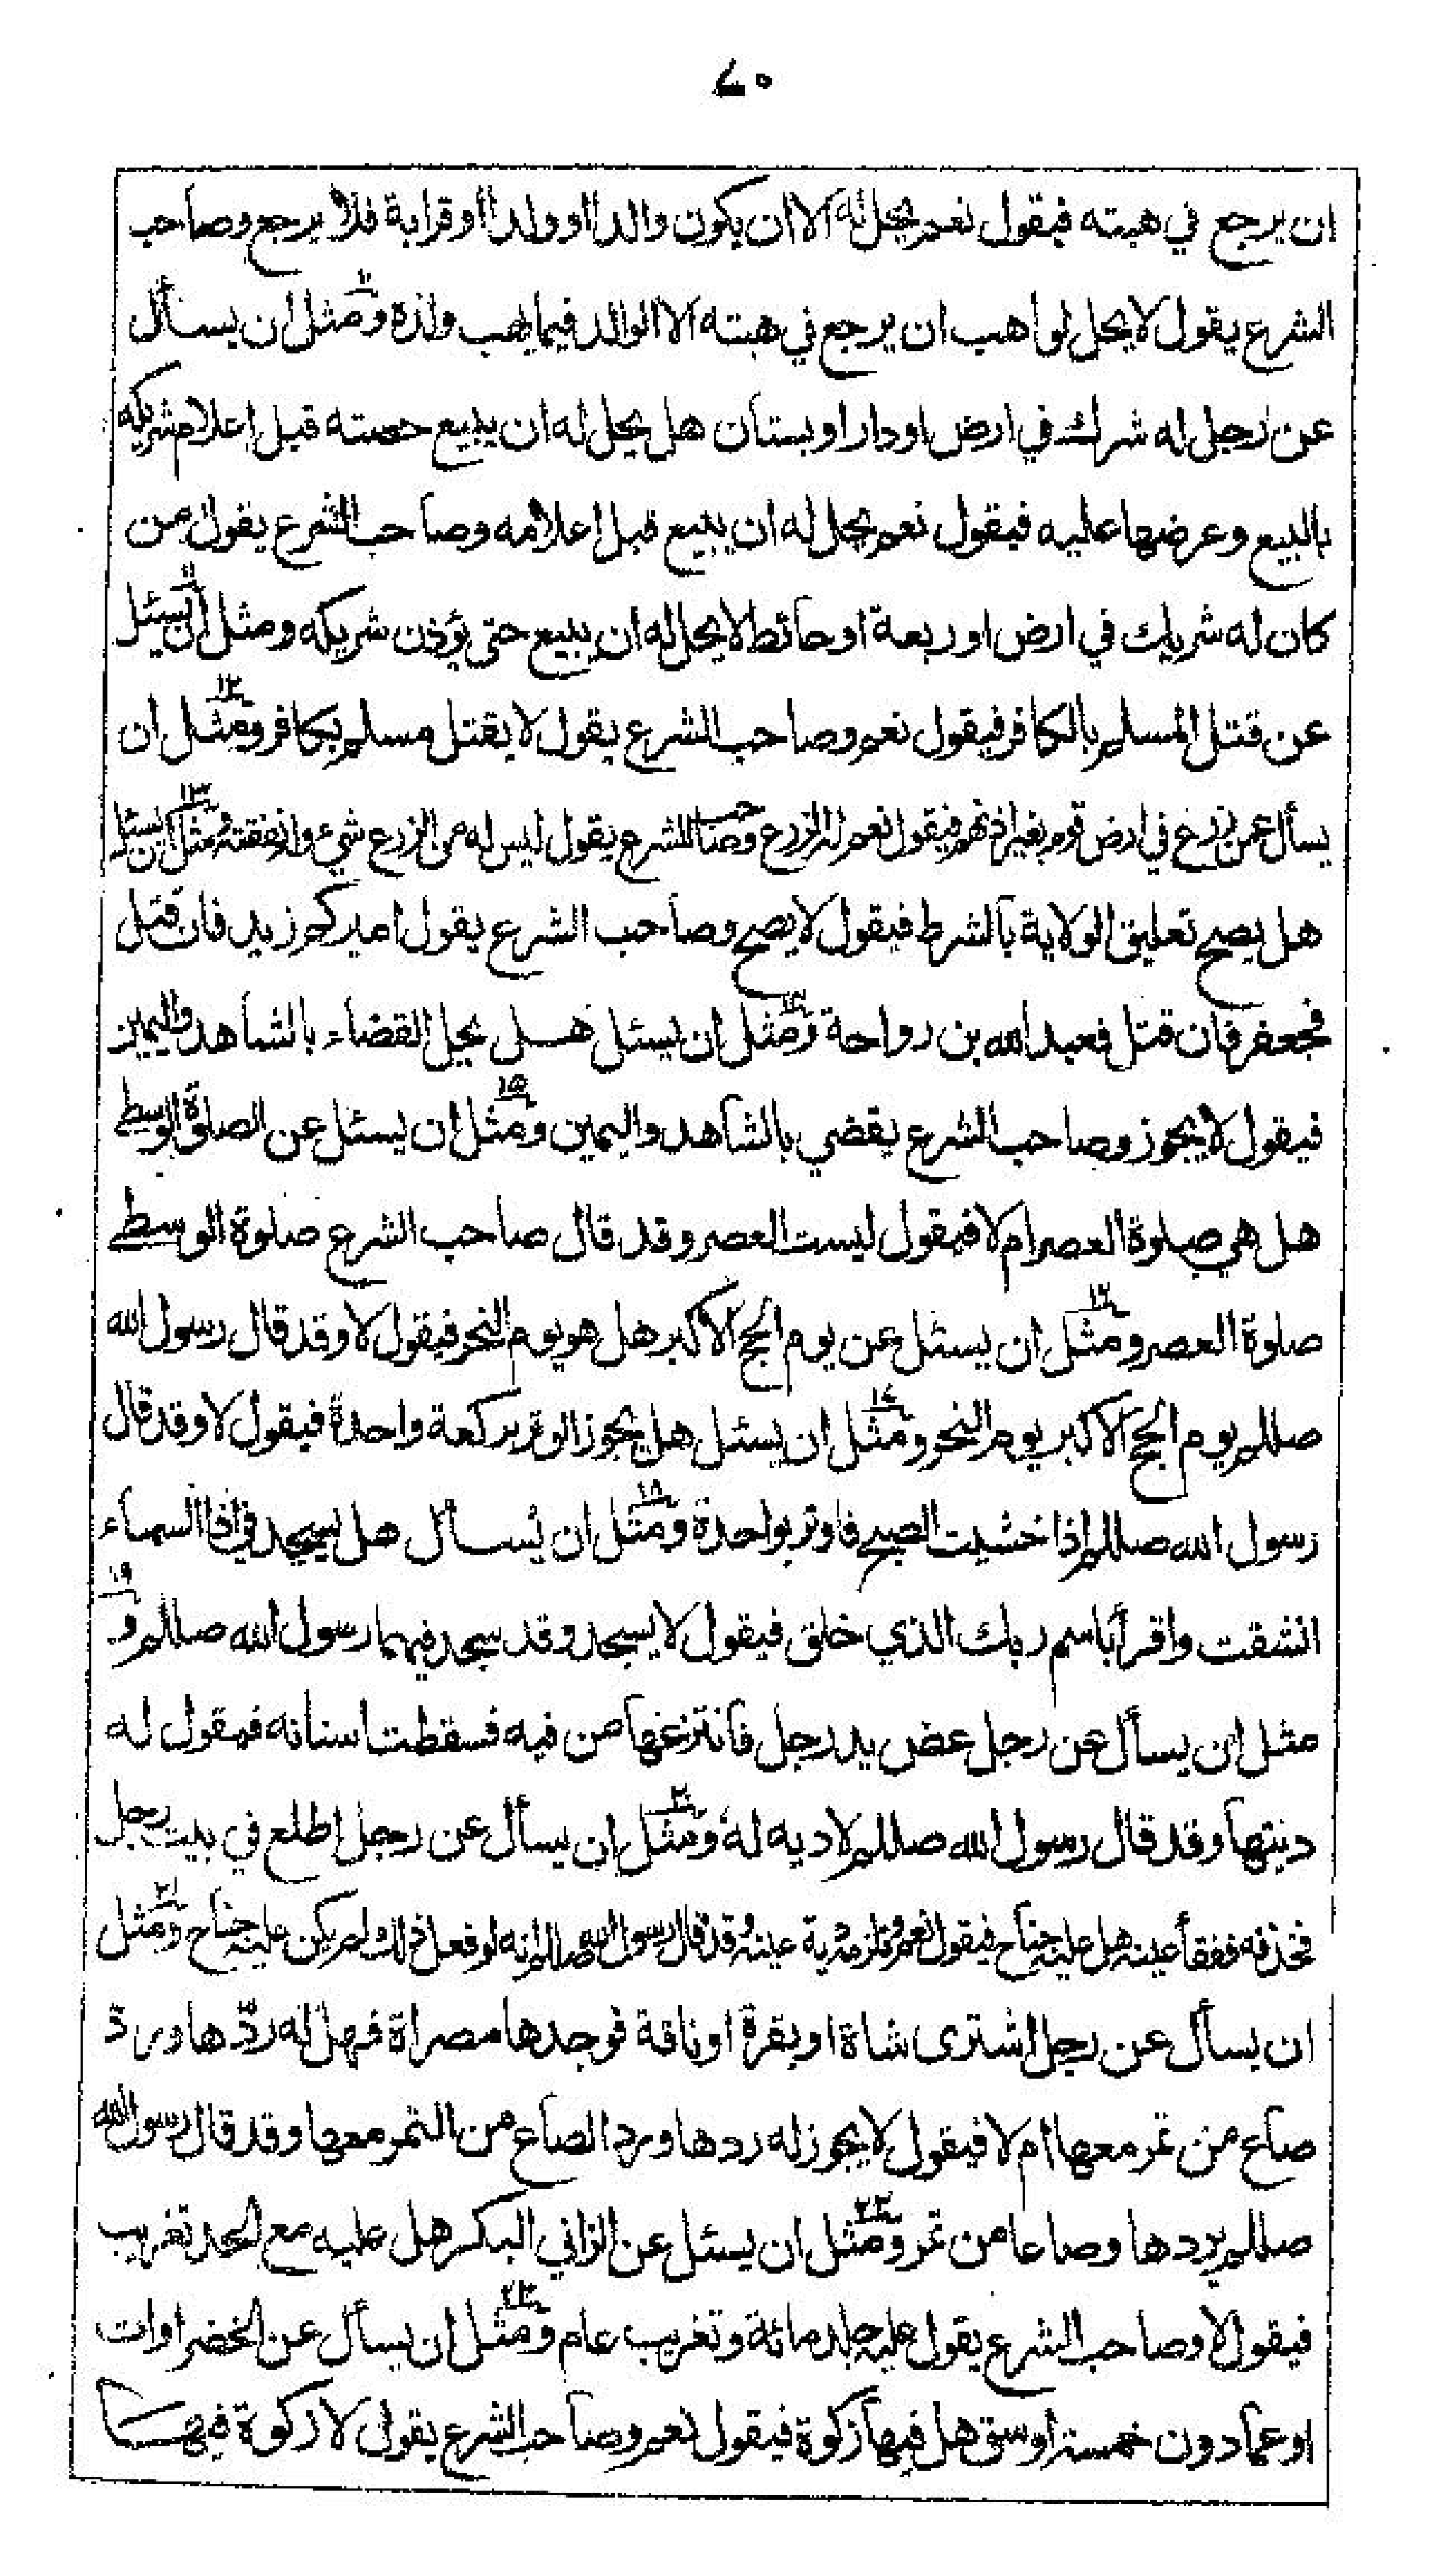 ٧٠
ان يرجع في هبته فيقول نعم يحل له الا ان يكون والدا او ولدا او قرابة فلا يرجع وصاحب
الشرع يقول لا يحل لواهب ان يرجع في هبته الا الوالد فيما يهب ولده ومثل ان يسأل
عن رجل له شرك في ارض او دار او بستان هل يحل له ان يبيع حصته قبل اعلام شريكه
بالبيع وعرضها عليه فيقول نعم يحل له ان يبيع قبل اعلامه وصاحب الشرع يقول من
كان له شريك في ارض او ربعة او حائط لا يحل له ان يبيع حتى يؤذن شريكه ومثل ان يسئل
عن قتل المسلم بالكافر فيقول نعم وصاحب الشرع يقول لا يقتل مسلم بكافر ومثل ان
يسأل عمن زرع في ارض قوم بغير اذنهم فيقول نعم الزرع وصاحب الشرع يقول ليس له من الزرع شيء وله نفقته ومثل ان يسئل
هل يصح تعليق الولاية بالشرط فيقول لا يصح وصاحب الشرع يقول اميركم زيد فان قتل
فجعفر فان قتل فعبد الله بن رواحة ومثل ان يسئل هل يحل القضاء بالشاهد واليمين
فيقول لا يجوز وصاحب الشرع يقضي بالشاهد واليمين ومثل ان يسئل عن الصلوة الوسطى
هل هي صلوة العصر ام لا فيقول ليست العصر وقد قال صاحب الشرع صلوة الوسطے
صلوة العصر ومثل ان يسئل عن يوم الحج الاكبر هل هو يوم النحر فيقول لا وقد قال رسول الله
صللم يوم الحج الاكبر يوم النحر ومثل ان يسئل هل يجوز الوتر بركعة واحدة فيقول لا وقد قال
رسول الله صللم اذا خشيت الصبح فاوتر بواحدة ومثل ان يُسأل هل يسجد في اذا السماء
انشقت واقرأ باسم ربك الذي خلق فيقول لا يسجد وقد سجد فيهما رسول الله صللم و
مثل ان يسأل عن رجل عض يد رجل فانتزعها من فيه فسقطت اسنانه فيقول له
ديتها وقد قال رسول الله صللم لا ديه له ومثل ان يسأل عن رجل اطلع في بيت رجل
فخذفه ففقأ عينه هل عليه جناح فيقول نعم وتلزمه دية عينه وقد قال رسول الله صللم انه لو فعل ذلك لم يكن عليه جناح ومثل
ان يسأل عن رجل اشترى شاة او بقرة او ناقة فوجدها مصراة فهل له ردّها ورد
صاع من تمر معها ام لا فيقول لا يجوز له ردها ورد الصاع من التمر معها وقد قال رسول الله
صللم يردها وصاعا من تمر ومثل ان يسئل عن الزاني البكر هل عليه مع الحد تغريب
فيقول لا وصاحب الشرع يقول عليه جلد مائة وتغريب عام ومثل ان يسأل عن الخضراوات
او عما دون خمسة اوسق هل فيها زكوة فيقول نعم وصاحب الشرع يقول لا زكوة فيها